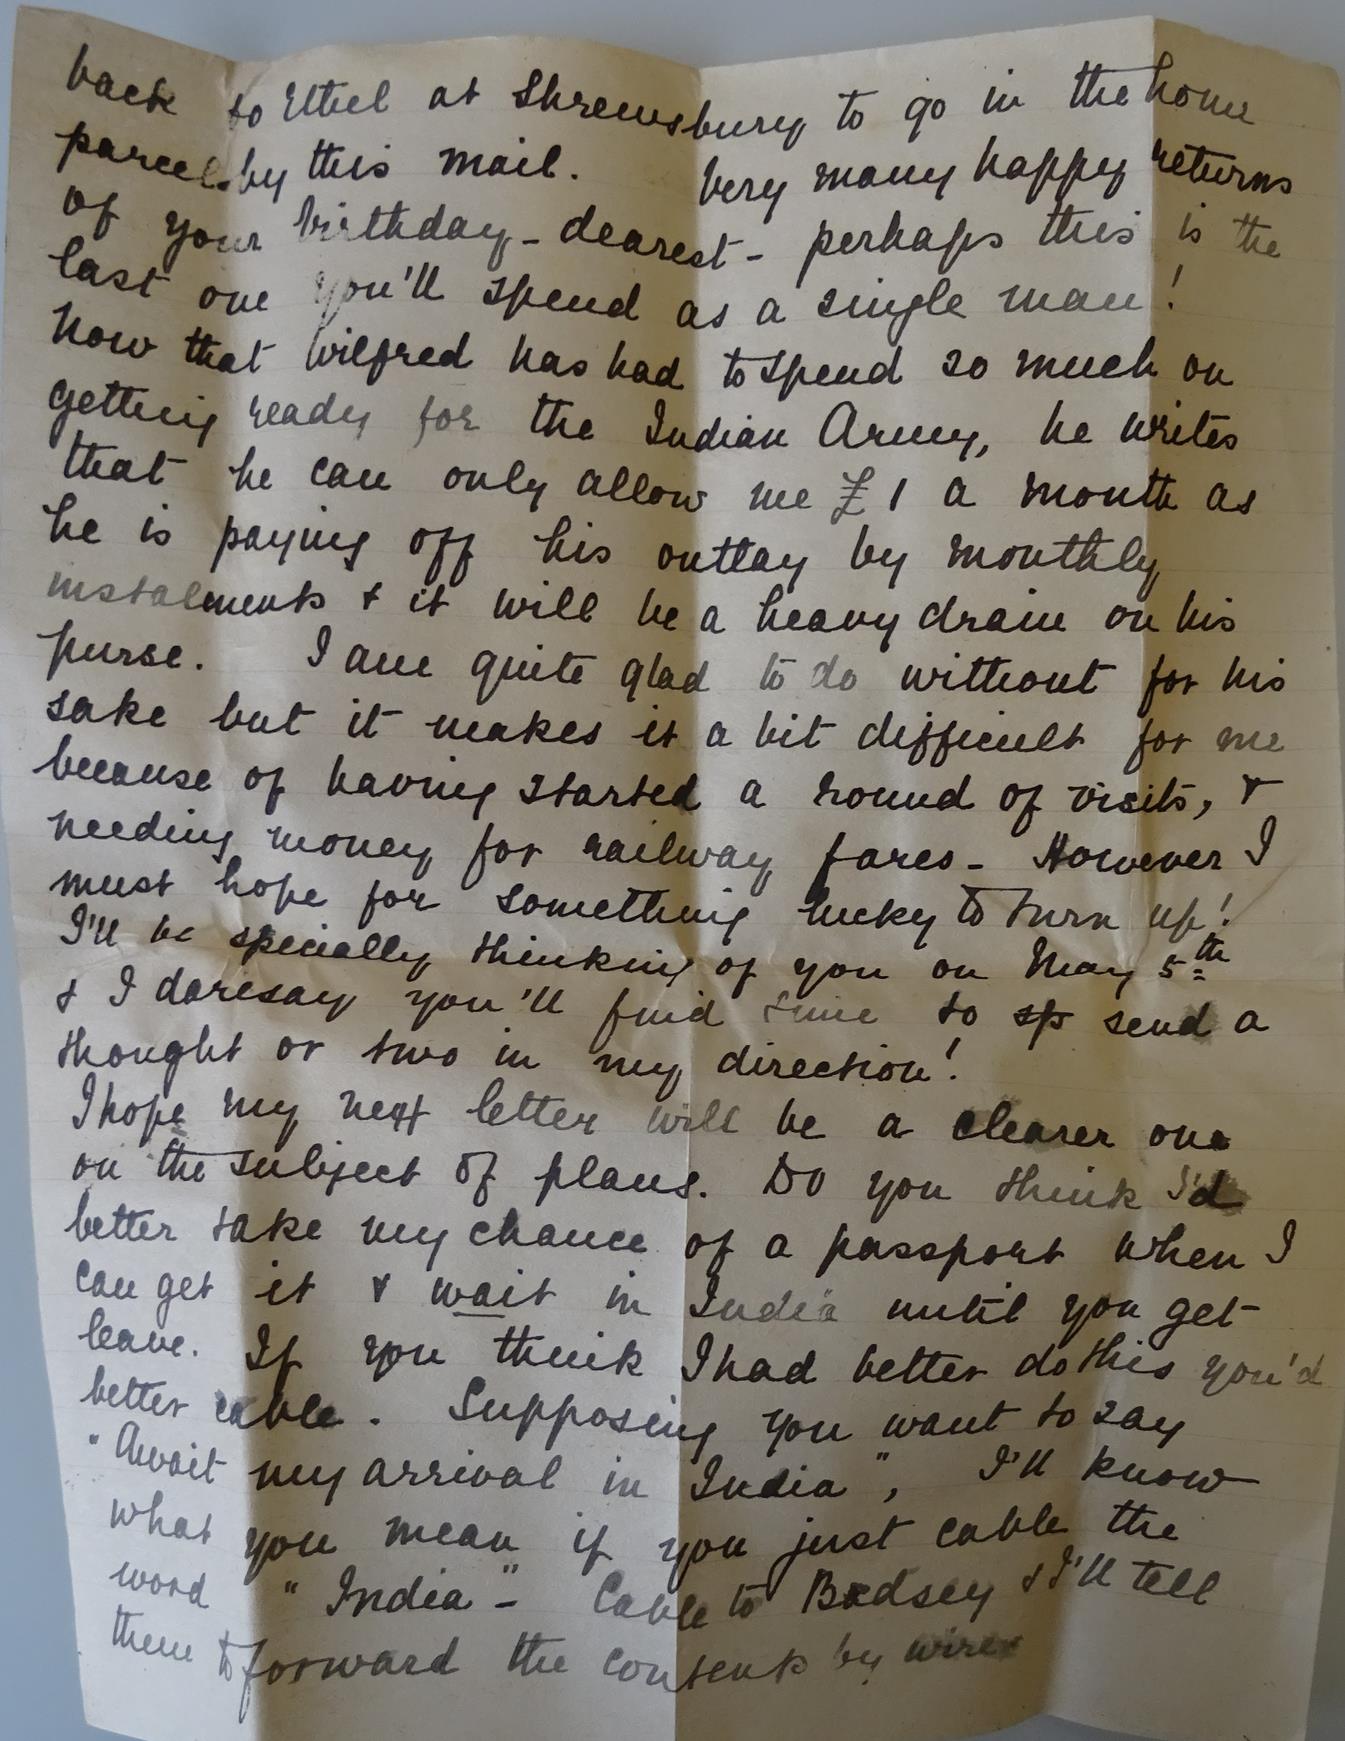 back to Ethel at Shrewsbury to go in the home
parcel by this mail. Very many happy returns
of your birthday - dearest - perhaps this is the
last one you'll spend as a single man!
Now that Wilfred has had to spend so much on
getting ready for the Indian Army, he writes
that he can only allow me £1 a month as
he is paying off his outlay by monthly
instalments & it will be a heavy drain on his
purse. I am quite glad to do without for his
sake but it makes it a bit difficult for me
because of having started a round of visits, &
needing money for railway fares - However I
must hope for something lucky to turn up!
I'll be specially thinking of you on May 5th
& I daresay you'll find time to sp send a
thought or two in my direction!
I hope my next letter will be a clearer one
on the subject of plans. Do you think I'd
better take my chance of a passport when I
can get it & wait in India until you get
leave. If you think I had better do this you'd
better cable. Supposing you want to say
"Await my arrival in India", I'll know
what you mean if you just cable the
word "India" - Cable to Badsey & I'll tell
them to forward the contents by wire